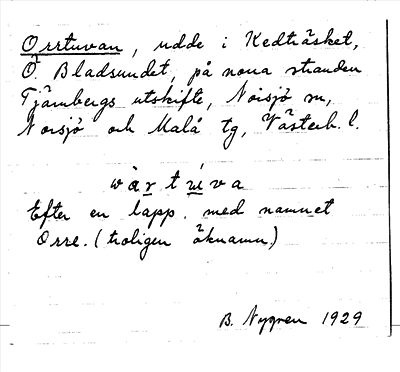 Orrtuvan, udde i Kedträsket,
Ö. Bladsundet, på norra stranden
Tjärnbergs utskifte, Norsjö sn,
Norsjö och Malå tg, Västerb. l.
Efter en lapp. med namnet
Orre. (troligen öknamn)
B. Nygren 1929